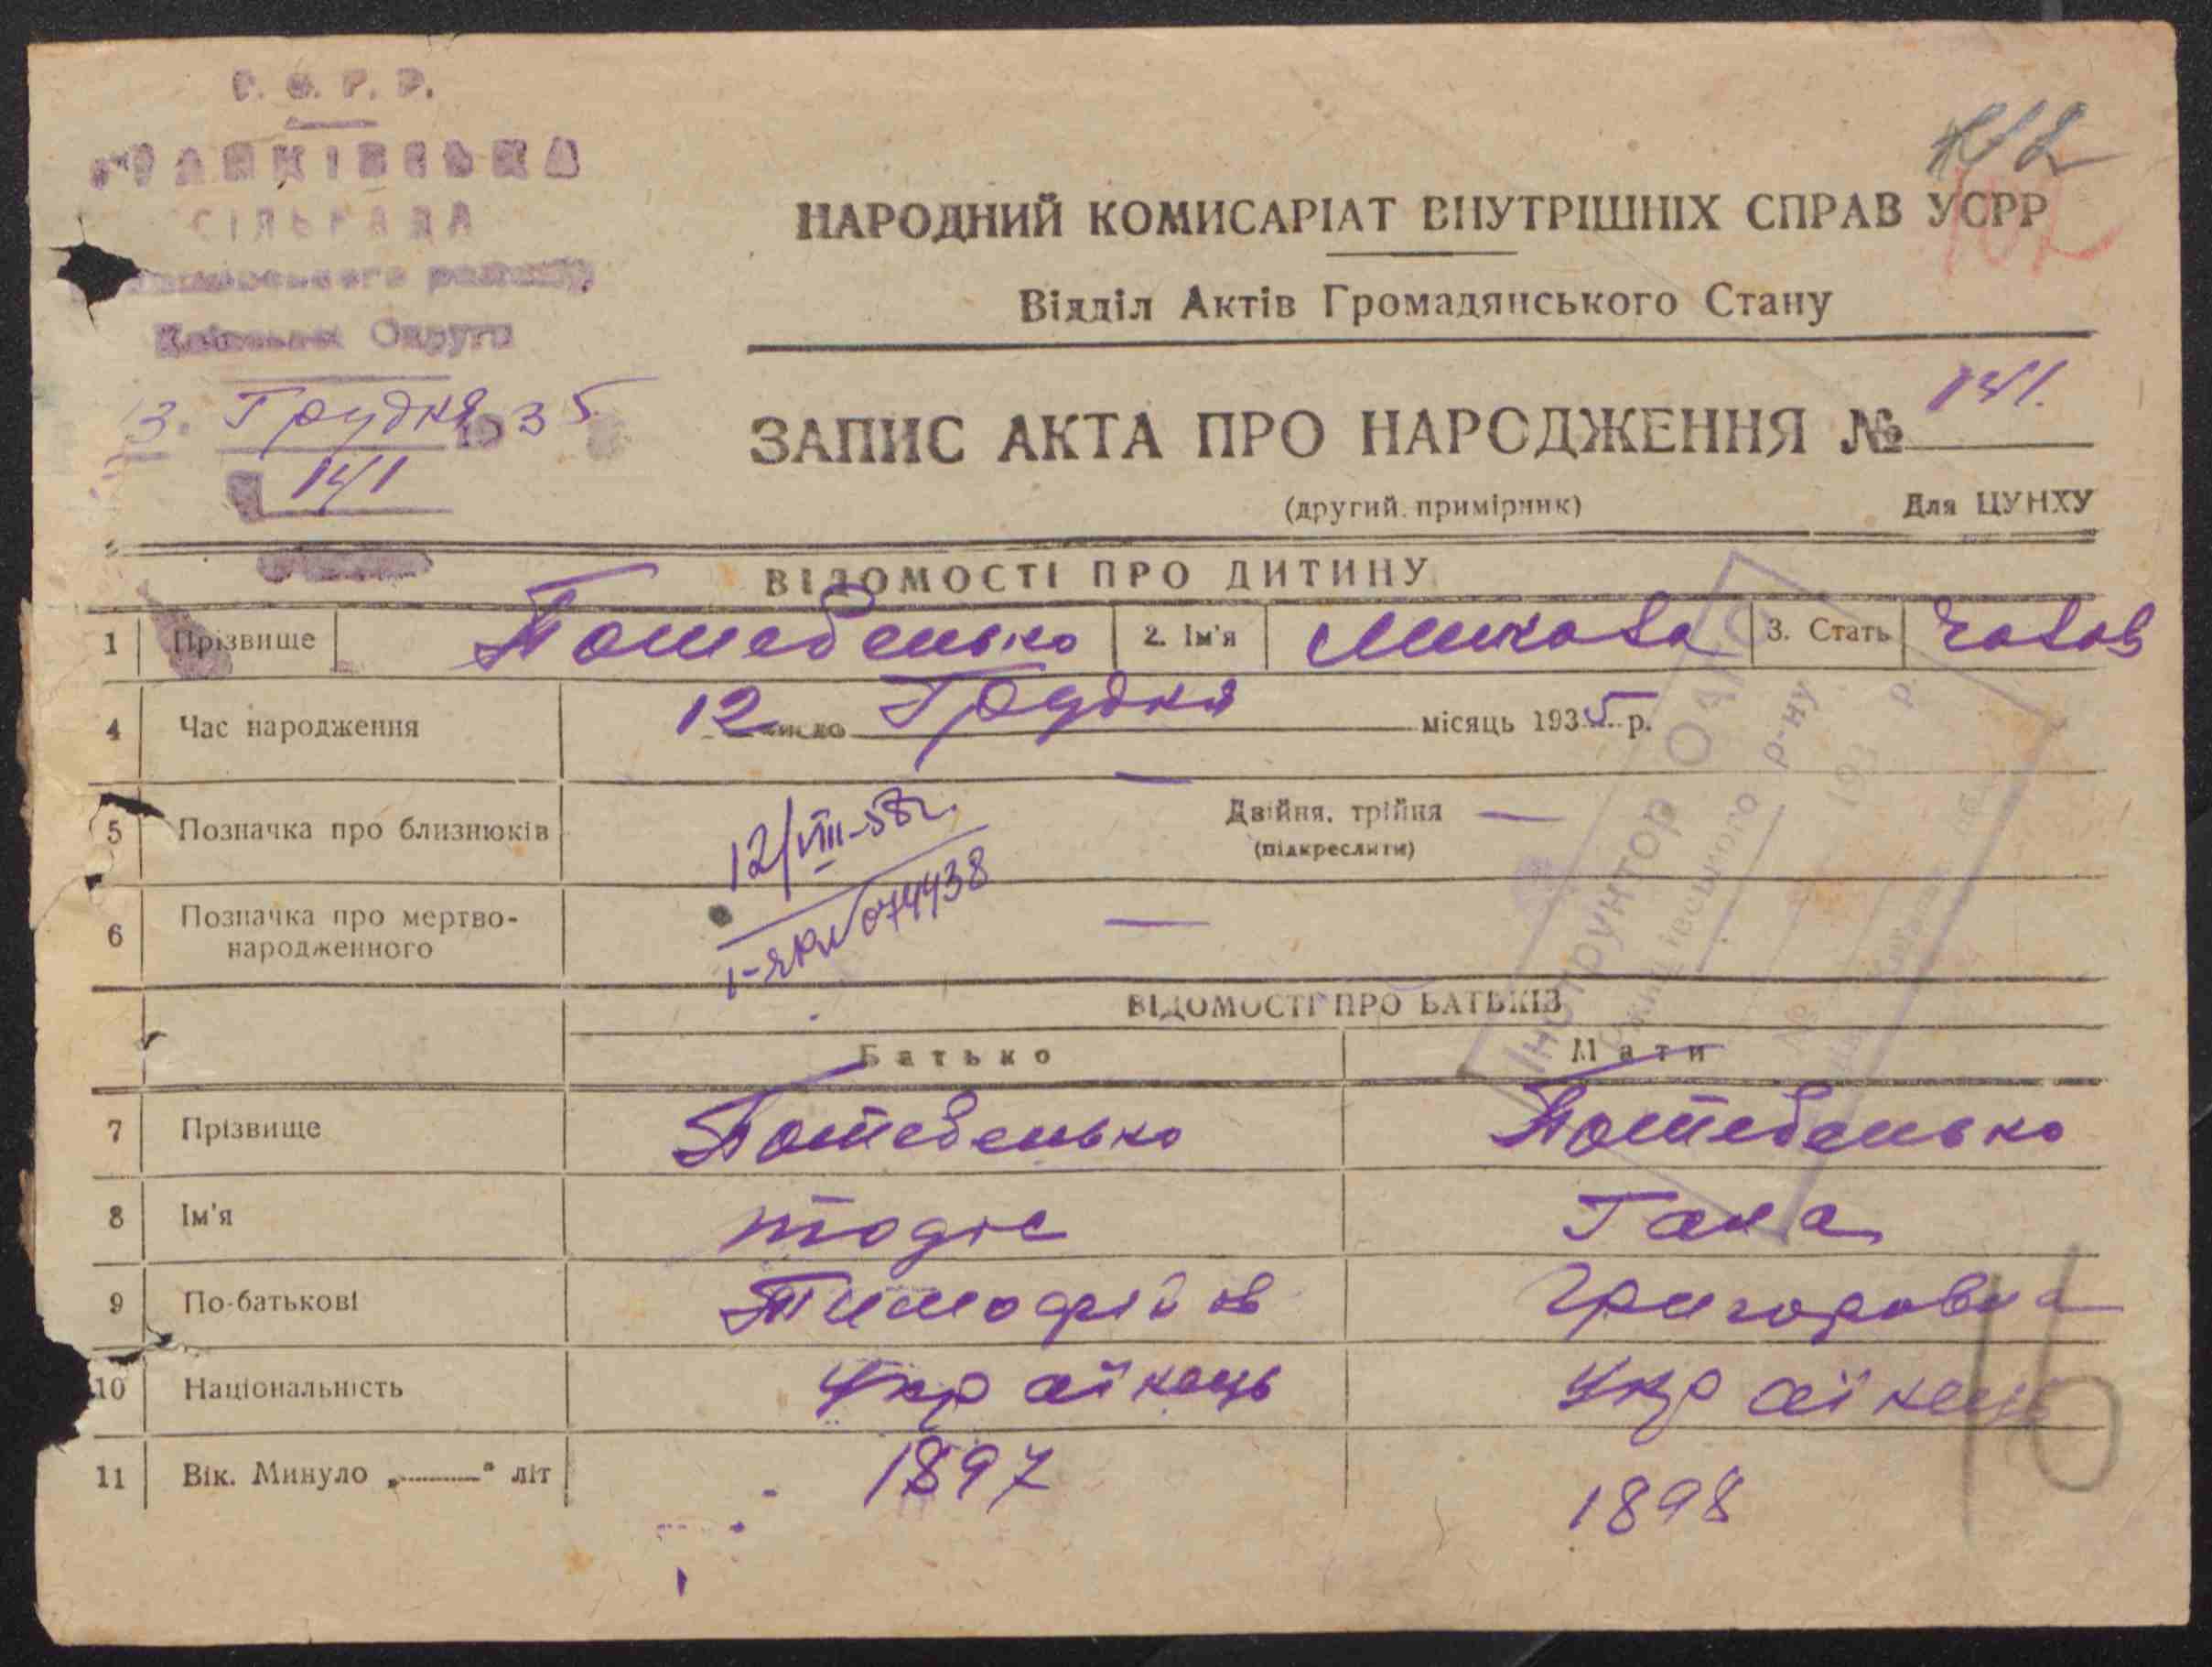 СІЛЬРАДА
Округи
13. Грудня 1935
141
112
102
НАРОДНИЙ КОМИСАРІАТ ВНУТРІШНІХ СПРАВ УСРР
Відділ Актів Громадянського Стану
ЗАПИС АКТА ПРО НАРОДЖЕННЯ № 141.
(другий примірник) Для ЦУНХУ
ВІДОМОСТІ ПРО ДИТИНУ
1 Прізвище Потебенько 2. Ім'я Микола 3. Стать Чолов
4 Час народження 12 число Грудня місяць 1935 р.
5 Позначка про близнюків — Двійня, трійня —
(підкреслити)
12/VIII-58г.
074438
6 Позначка про мертво-
народженного —
Інструктор ОАГС
р-ну
193 р.
№
ВІДОМОСТІ ПРО БАТЬКІВ
Батько Мати
7 Прізвище Потебенько Потебенько
8 Ім'я Тодос Гана
9 По-батькові Тимофійов Григоровна
10 Національність Українець Українець
11 Вік. Минуло „———" літ 1897 1898
16